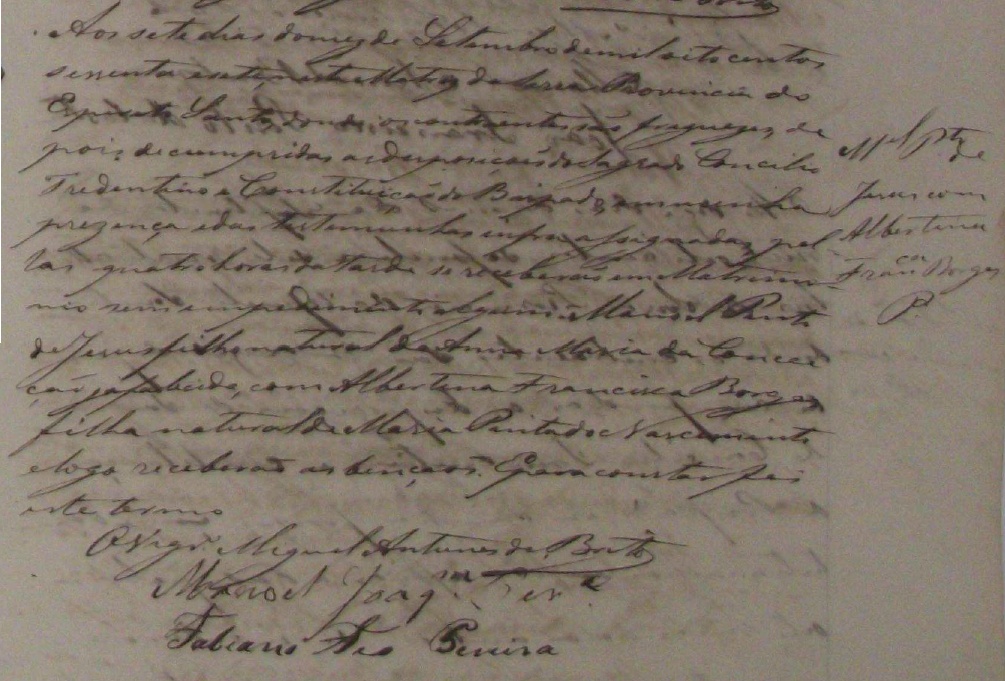 Aos sete dias do mez de Setembro de mil oito centos
sessenta e sete, nesta Matriz da Serra Provincia do
Espirito Santo, donde os contrahentes são freguezes, de
pois de cumpridas as disposiçoens do Sagrado Concilio
Tredentino e Constituiçaõ do Bispado, em minha
prezença e das testemunhas infra assignadas, pel
las quatro horas da tarde se receberaõ em Matrimo
nio sem impedimento algum Manoel Pinto
de Jesus filho natural de Anna Maria da Concei
çaõ ja falicida, com Albertina Francisca Borges
filha natural de Maria Pinta do Nascimento
e logo receberaõ as bençaos. E para constar fiz
este termo
O Vigr.º Miguel Antunes de Brito
Manoel Joaqm Per.ª
Fabiano Pereira
Mel Pto
de
Jesus com
Albertina
Francca Borges
P.